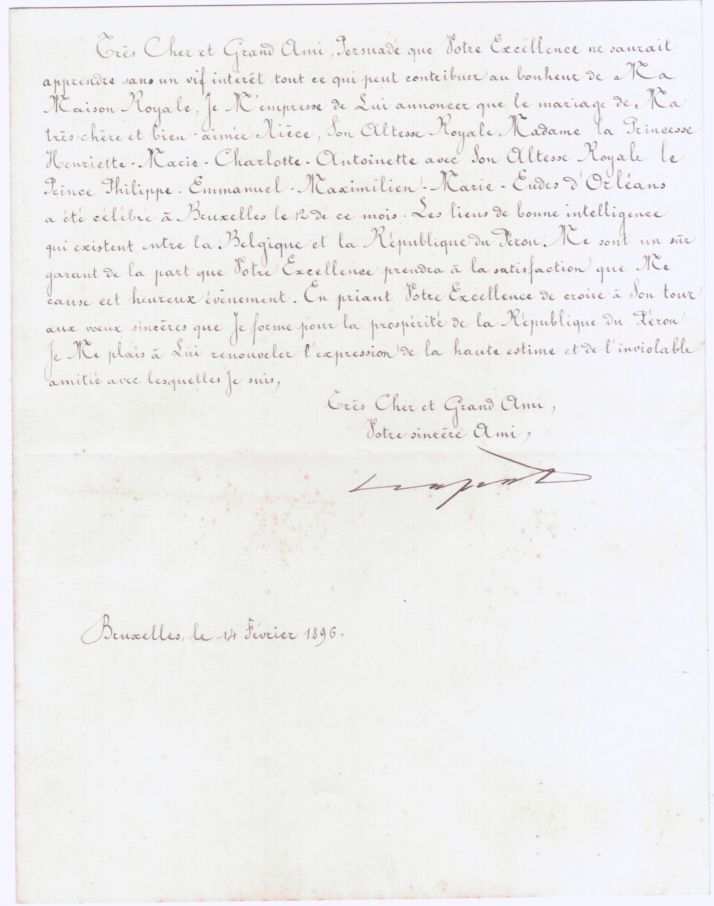 Très Cher et Grand Ami, Persuadé que Votre Excellence ne saurait
apprendre sans un vif intérêt tout ce qui peut contribuer au bonheur de Ma
Maison Royale, Je M'empresse de Lui annoncer que le mariage de Ma
très-chère et bien-aimée Nièce, Son Altesse Royale Madame la Princesse
Henriette-Marie-Charlotte-Antoinette avec Son Altesse Royale le
Prince Philippe-Emmanuel-Maximilien-Marie-Eudes d'Orléans
a été célébré à Bruxelles le 12 de ce mois. Les liens de bonne intelligence
qui existent entre la Belgique et la République du Pérou Me sont un sûr
garant de la part que Votre Excellence prendra à la satisfaction que Me
cause cet heureux évènement. En priant Votre Excellence de croire à Son tour
aux voeux sincères que Je forme pour la prospérité de la République du Pérou
Je Me plais à Lui renouveler l'expression de la haute estime et de l'inviolable
amitié avec lesquelles Je suis,
Très Cher et Grand Ami,
Votre sincère Ami,
Bruxelles, le 14 Février 1896.